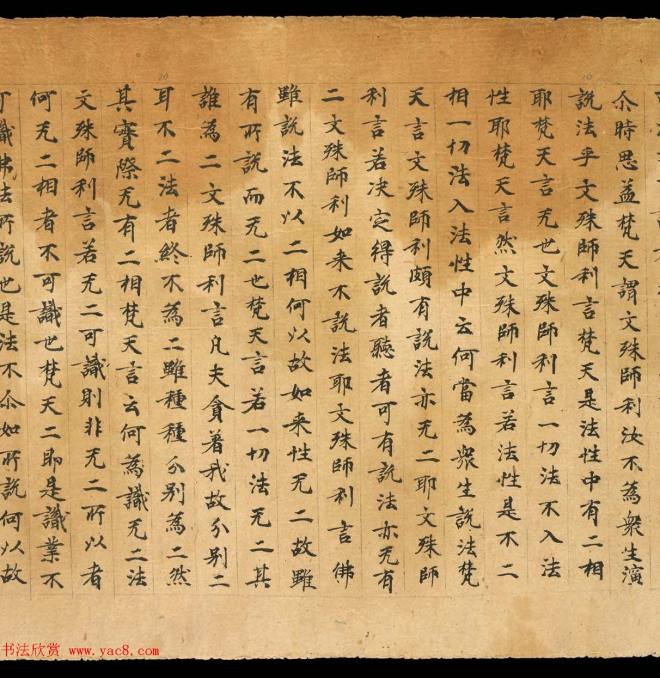 尒時思益梵天謂文殊師利汝不為衆生演
說法乎文殊師利言梵天是法性中有二相
耶梵天言无也文殊師利言一切法不入法
性耶梵天言然文殊師利言若法性是不二
相一切法入法性中云何當為衆生說法梵
天言文殊師利頗有說法亦无二耶文殊師
利言若决定得說者聽者可有說法亦无有
二文殊師利如来不說法耶文殊師利言佛
雖說法不以二相何以故如来性无二故雖
有所說而无二也梵天言若一切法无二其
誰為二文殊師利言凡夫貪著我故分别二
耳不二法者終不為二雖種種分别為二然
其實際无有二相梵天言云何為識无二法
文殊師利言若无二可識則非无二所以者
何无二相者不可識也梵天二即是識業不
可識佛法所說也是法不尒如所說何以故
书法欣赏 www.yac8.com